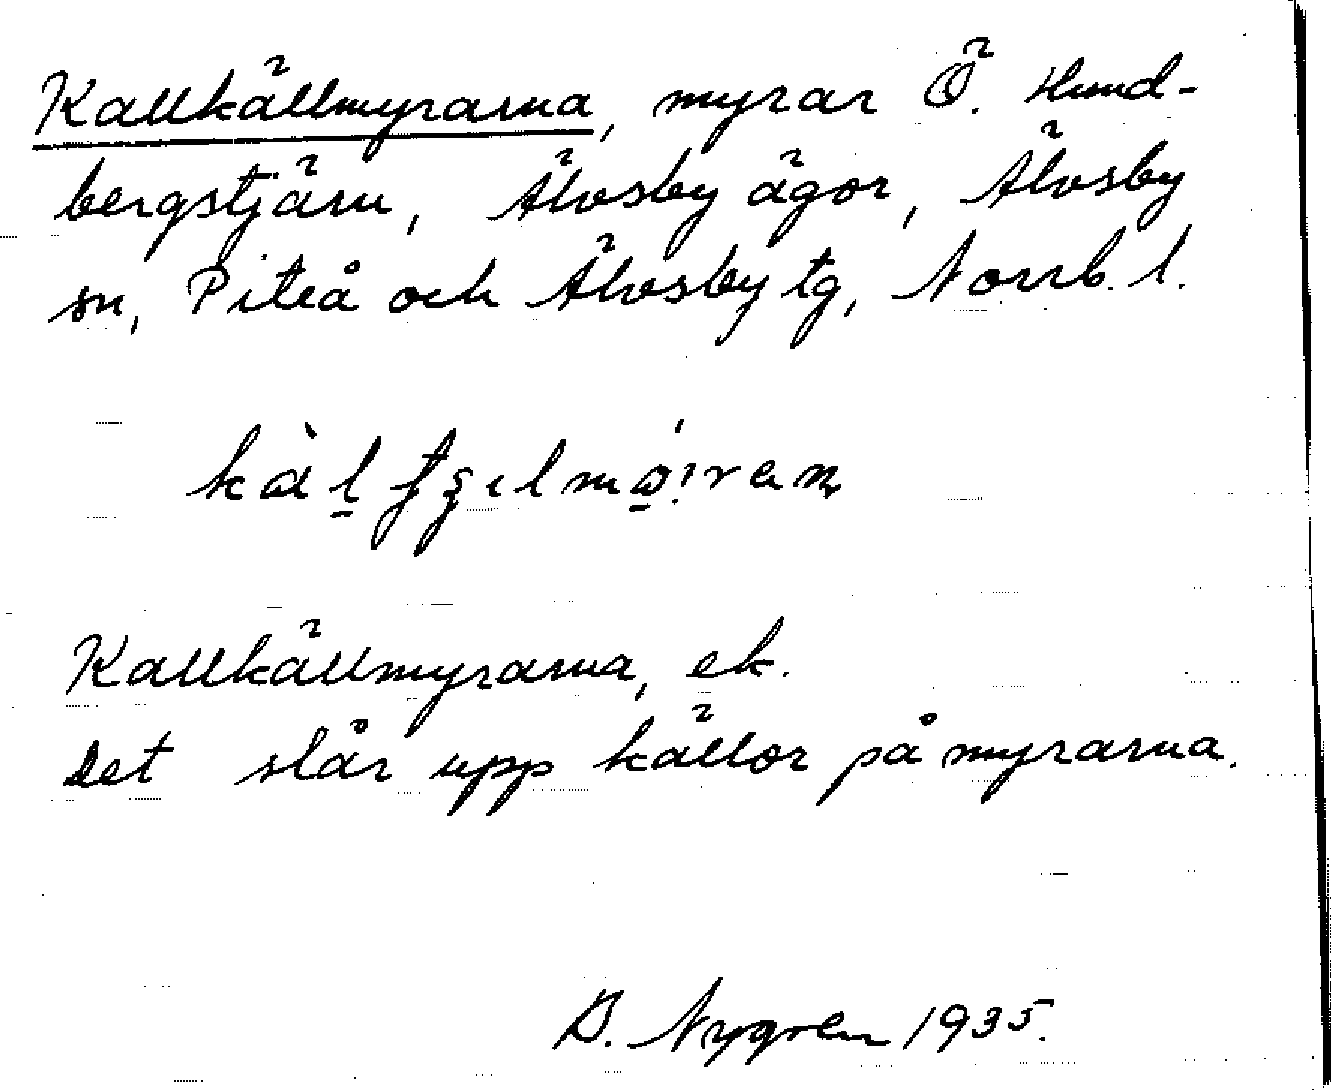 Kallkällmyrarna, myrar Ö. Hund-
bergstjärn, Älvsby ägor, Älvsby
sn, Piteå och Älvsby tg, Norrb. l.
Kallkällmyrarna, ek.
Det slår upp källor på myrarna.
B. Nygren 1935.